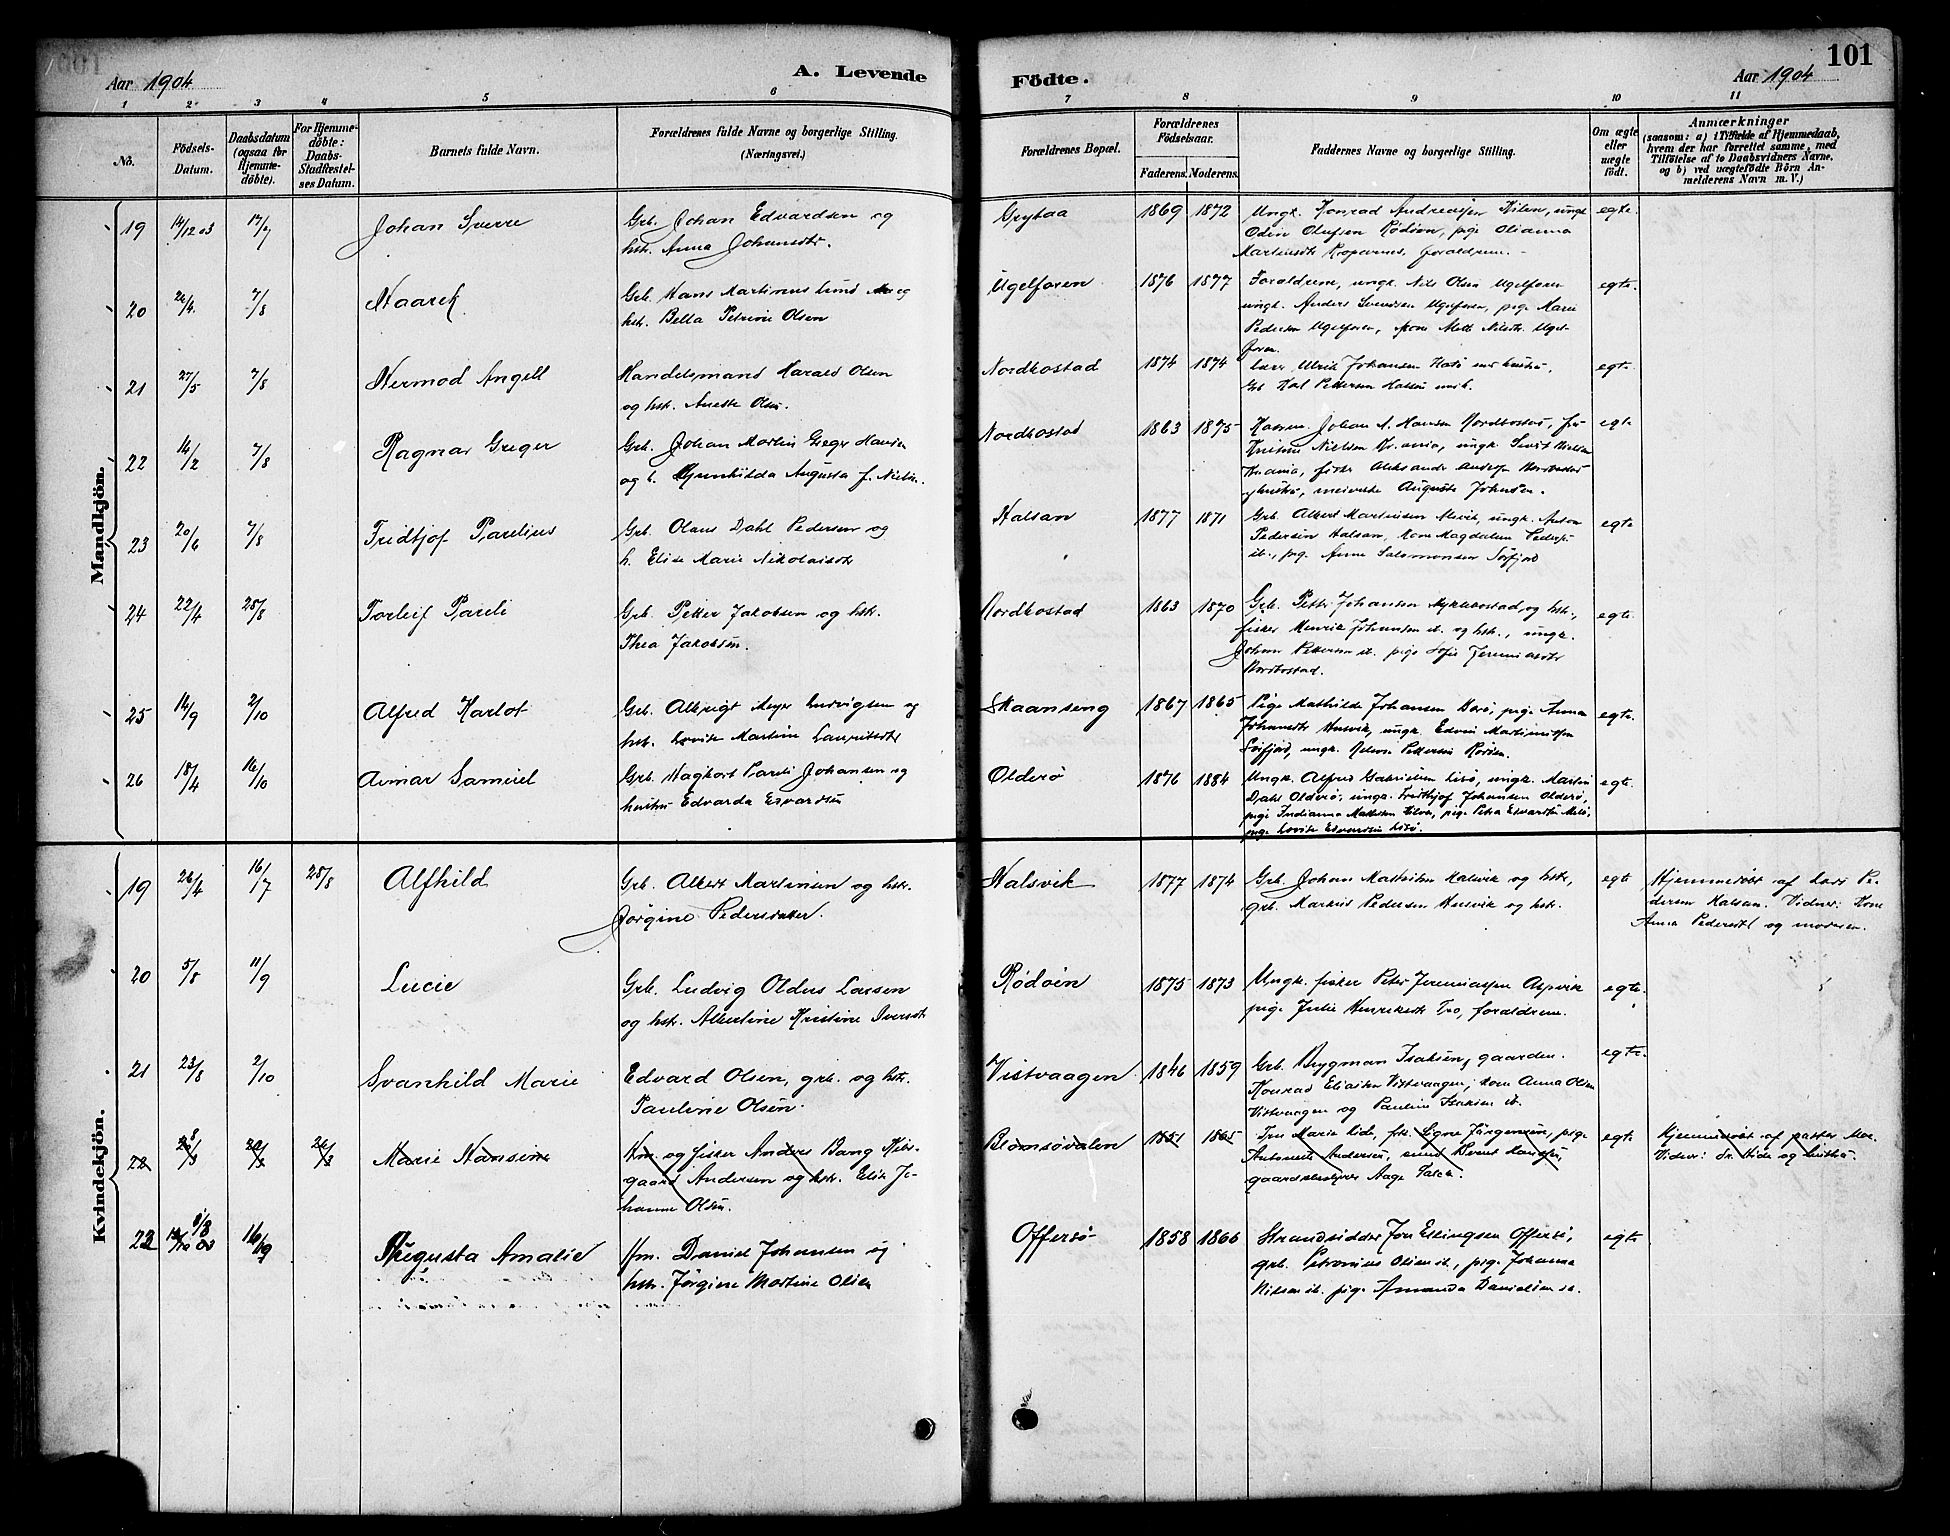 101
Aar 1904
A. Levende
Födte.
Aar 1904
1 2 3 4 5 6 7 8 9 10 11
No.
Födsels-
Datum.
Daabsdatum
(ogsaa for
Hjemme-
döbte).
For Hjemme-
döbte:
Daabs-
Stadfestel-
ses Datum.
Barnets fulde Navn.
Forældrenes fulde Navne og borgerlige Stilling.
(Næringsvei.)
Forældrenes Bopæl.
Forældrenes
Födselsaar.
Faderens. Moderens.
Faddernes Navne og borgerlige Stilling.
Om ægte
eller
uægte
födt.
Anmærkninger
(saasom: a) i Tilfælde af Hjemmedaab,
hvem der har forrettet samme, med
Tilföielse af to Daabsvidners Navne,
og b) ved uægtefödte Börn An-
melderens Navn m. V.)
Mandkjön.
19 14/12 03 17/7 Johan Sverre
Grb. Johan Edvardsen og
hstr. Anna Johansdtr.
Grytaa 1869 1872
Ungk. Konrad Andreassen Kilen, ungk
Odin Olufsen Rödöen, pige Olianna
Martinsdtr, forældrene.
egte.
20 7/8 Haarek
Grb. Hans Martinus Lund og
hstr. Bella Petrine Olsen
Ugelforen 1876 1877
Forældrene, ungk. Nils Olsen Ugelforen
ungk. Anders Ugelforen, pige Marie
Pedersen Ugelforen, kone Mette Nilsdtr. Ugel-
foren.
egte.
21 27/5 7/8 Hermod Angell
Handelsmand Harald Olsen
og hstr. Anette Olsen.
Nordkostad 1874 1874
Ulrik Johansen med hustru,
Grb Karl Pettersen
egte.
22 14/2 7/8 Ragnar Greger
Grb. Johan Martin Greger Hansen
og h. Augusta f. Nielsen.
Nordkostad 1863 1875
Johan A. Hansen Nordkostad,
Nielsen Kr.ania, ungk.
fisker Aleksander
hustru, Auguste Johansen.
egte
23 20/6 7/8 Fridtjof Parelius
Grb. Olaus Dahl Pedersen og
h. Elise Marie Nikolaisdtr
Halsan 1877 1871
Grb. Albert Martinsen, ungk. Anton
Pedersen Halsan, Kone Magdalena Pedersen
ib., pig. Anne Salomonsen Sörfjord
egte
24 22/4 28/8 Torleif Pareli
Grb. Petter Jakobsen og hstr.
Thea Jakobsen.
Nordkostad 1863 1870
Grb. Petter Johansen Myklebostad, og hstr.,
fisker Henrik Johansen ib. og hstr., ungk.
Johan Pettersen ib. pige Sofie Jeremiasdtr
Nordkostad.
egte.
25 14/9 2/10 Alfred Karlot
Grb. Albrigt Meyer Ludvigsen og
hstr. Lovise Martine Lauritsdtr
Skaanseng 1867 1865
Pige Mathilde Johansen, pige Anna
Johansdtr Husvik, ungk. Edvin Martinussen
Sörfjord, ungk. Pettersen
egte.
26 18/4 16/10 Aimar Samuel
Grb. Hagbart Pareli Johansen og
hustru Edvarda Edvardsen
Olderö 1876 1884
Ungk. Alfred Gabrielsen, ungk. Martin
Dahl Olderö, ungk. Fridthjof Johansen Olderö,
pige Indianna Mathisen, pige Petra Edvardsen
pige Lovise Edvardsen
egte.
Kvindekjön.
19 26/4 16/7 28/8 Alfhild
Grb. Albert Martinsen og hstr.
Jörgine Pedersdatter.
Halsvik 1877 1874
Grb. Johan Mathisen Halsvik og hstr,
grb. Markus Pedersen Husvik og hstr.
egte
Hjemmedöbt af Lars Pe-
dersen Halsan. Vidner: Kone
Anna Pedersdtr og moderen.
20 5/8 11/9 Lucie
Grb. Ludvig Oldus Larsen
og hstr. Albertine Kristine Iversdtr
Rödöen 1875 1873
Ungk. fisker Peter Jeremiassen Aspvik
pige Julie Henriksdtr Tro, forældrene.
egte.
21 23/8 2/10 Svanhild Marie
Edvard Olsen, grb. og hstr.
Pauline Olsen.
Vistvaagen 1846 1859
Grb. Brygman Isaksen, gaarden.
Konrad Eliassen Vistvaagen, kone Anna Olsen
Vistvaagen og Pauline Isaksen ib.
egte.
22 Marie Hansine
Hm. og fisker Anders Bang Kjels-
gaard Andersen og hstr. Elise Jo-
hanne Olsen.
Blomsövalen 1851 1865
Fru Marie Lide, frk. Signe Jörgensen, pige
Antonette Andersen, Bernt Hansen,
gaardsbestyrer Aage Falck.
egte
Hjemmedöbt af pastor
Vidner: Dr. Lide og hustru.
22 16/9 Augusta Amalie
Hm. Daniel Johansen og
hstr. Jörgine Martine Olsen
Offersö 1858 1866
Strandsidder Jon Ellingsen Offersö,
grb. Petronius Olsen ib., pige Johanna
Nilsen ib. pige Amanda Danielsen ib.
egte